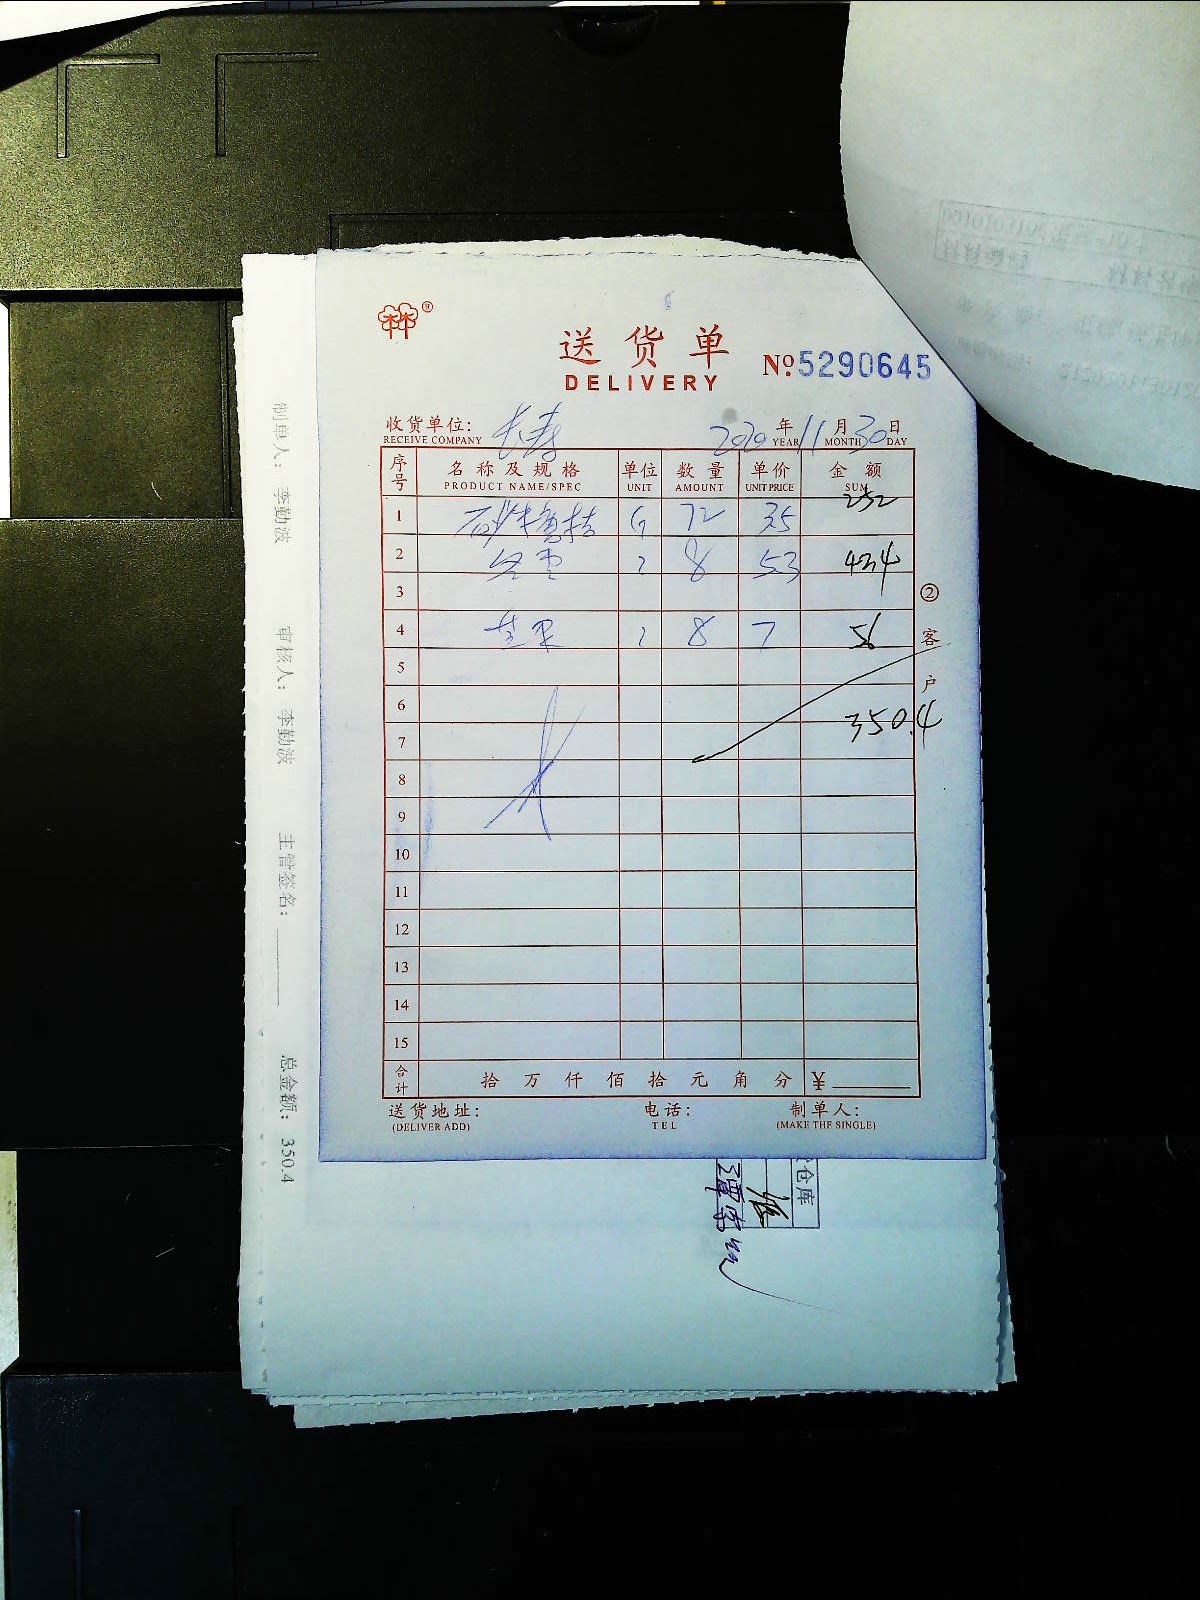 送货单
DELIVERY
No 5290645
收货单位: 长寿 2020年11月30日
RECEIVE COMPANY YEAR MONTH DAY
序号 名称及规格 单位 数量 单价 金额
PRODUCT NAME/SPEC UNIT AMOUNT UNIT PRICE SUM
1 72 35 252
2 冬枣 8 53 42.4
3
4 芒果 8 7 56
5
6
7 350.4
8
9
10
11
12
13
14
15
合计 拾 万 仟 佰 拾 元 角 分 ¥
送货地址: 电话: 制单人:
(DELIVER ADD) TEL (MAKE THE SINGLE)
②客户
制单人: 李勤波 审核人: 李勤波 主管签名: 总金额: 350.4
仓库